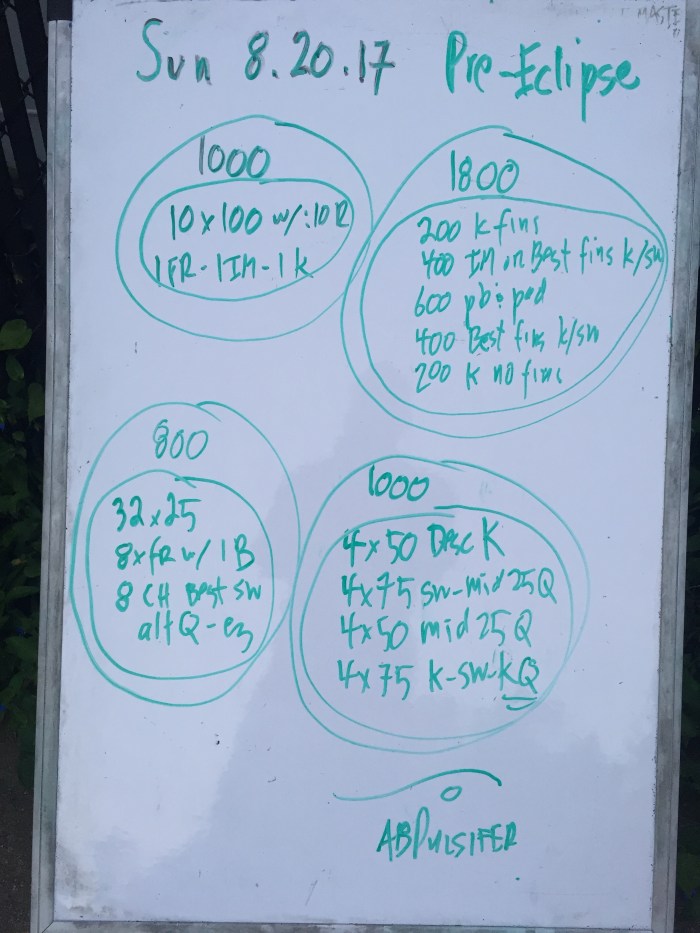 Sun 8.20.17 Pre-Eclipse
1000
10x100 w/:10 R
1FR-1IM-1K
1800
200 K fins
400 IM or Best fins k/sw
600 pb+pad
400 Best fins k/sw
200 K no fins
800
32x25
8xfR w/ 1B
8 CH Best sw
alt Q-ez
1000
4x50 Desc K
4x75 sw-mid 25Q
4x50 mid 25 Q
4x75 K-sw-KQ
ABPULSIFER